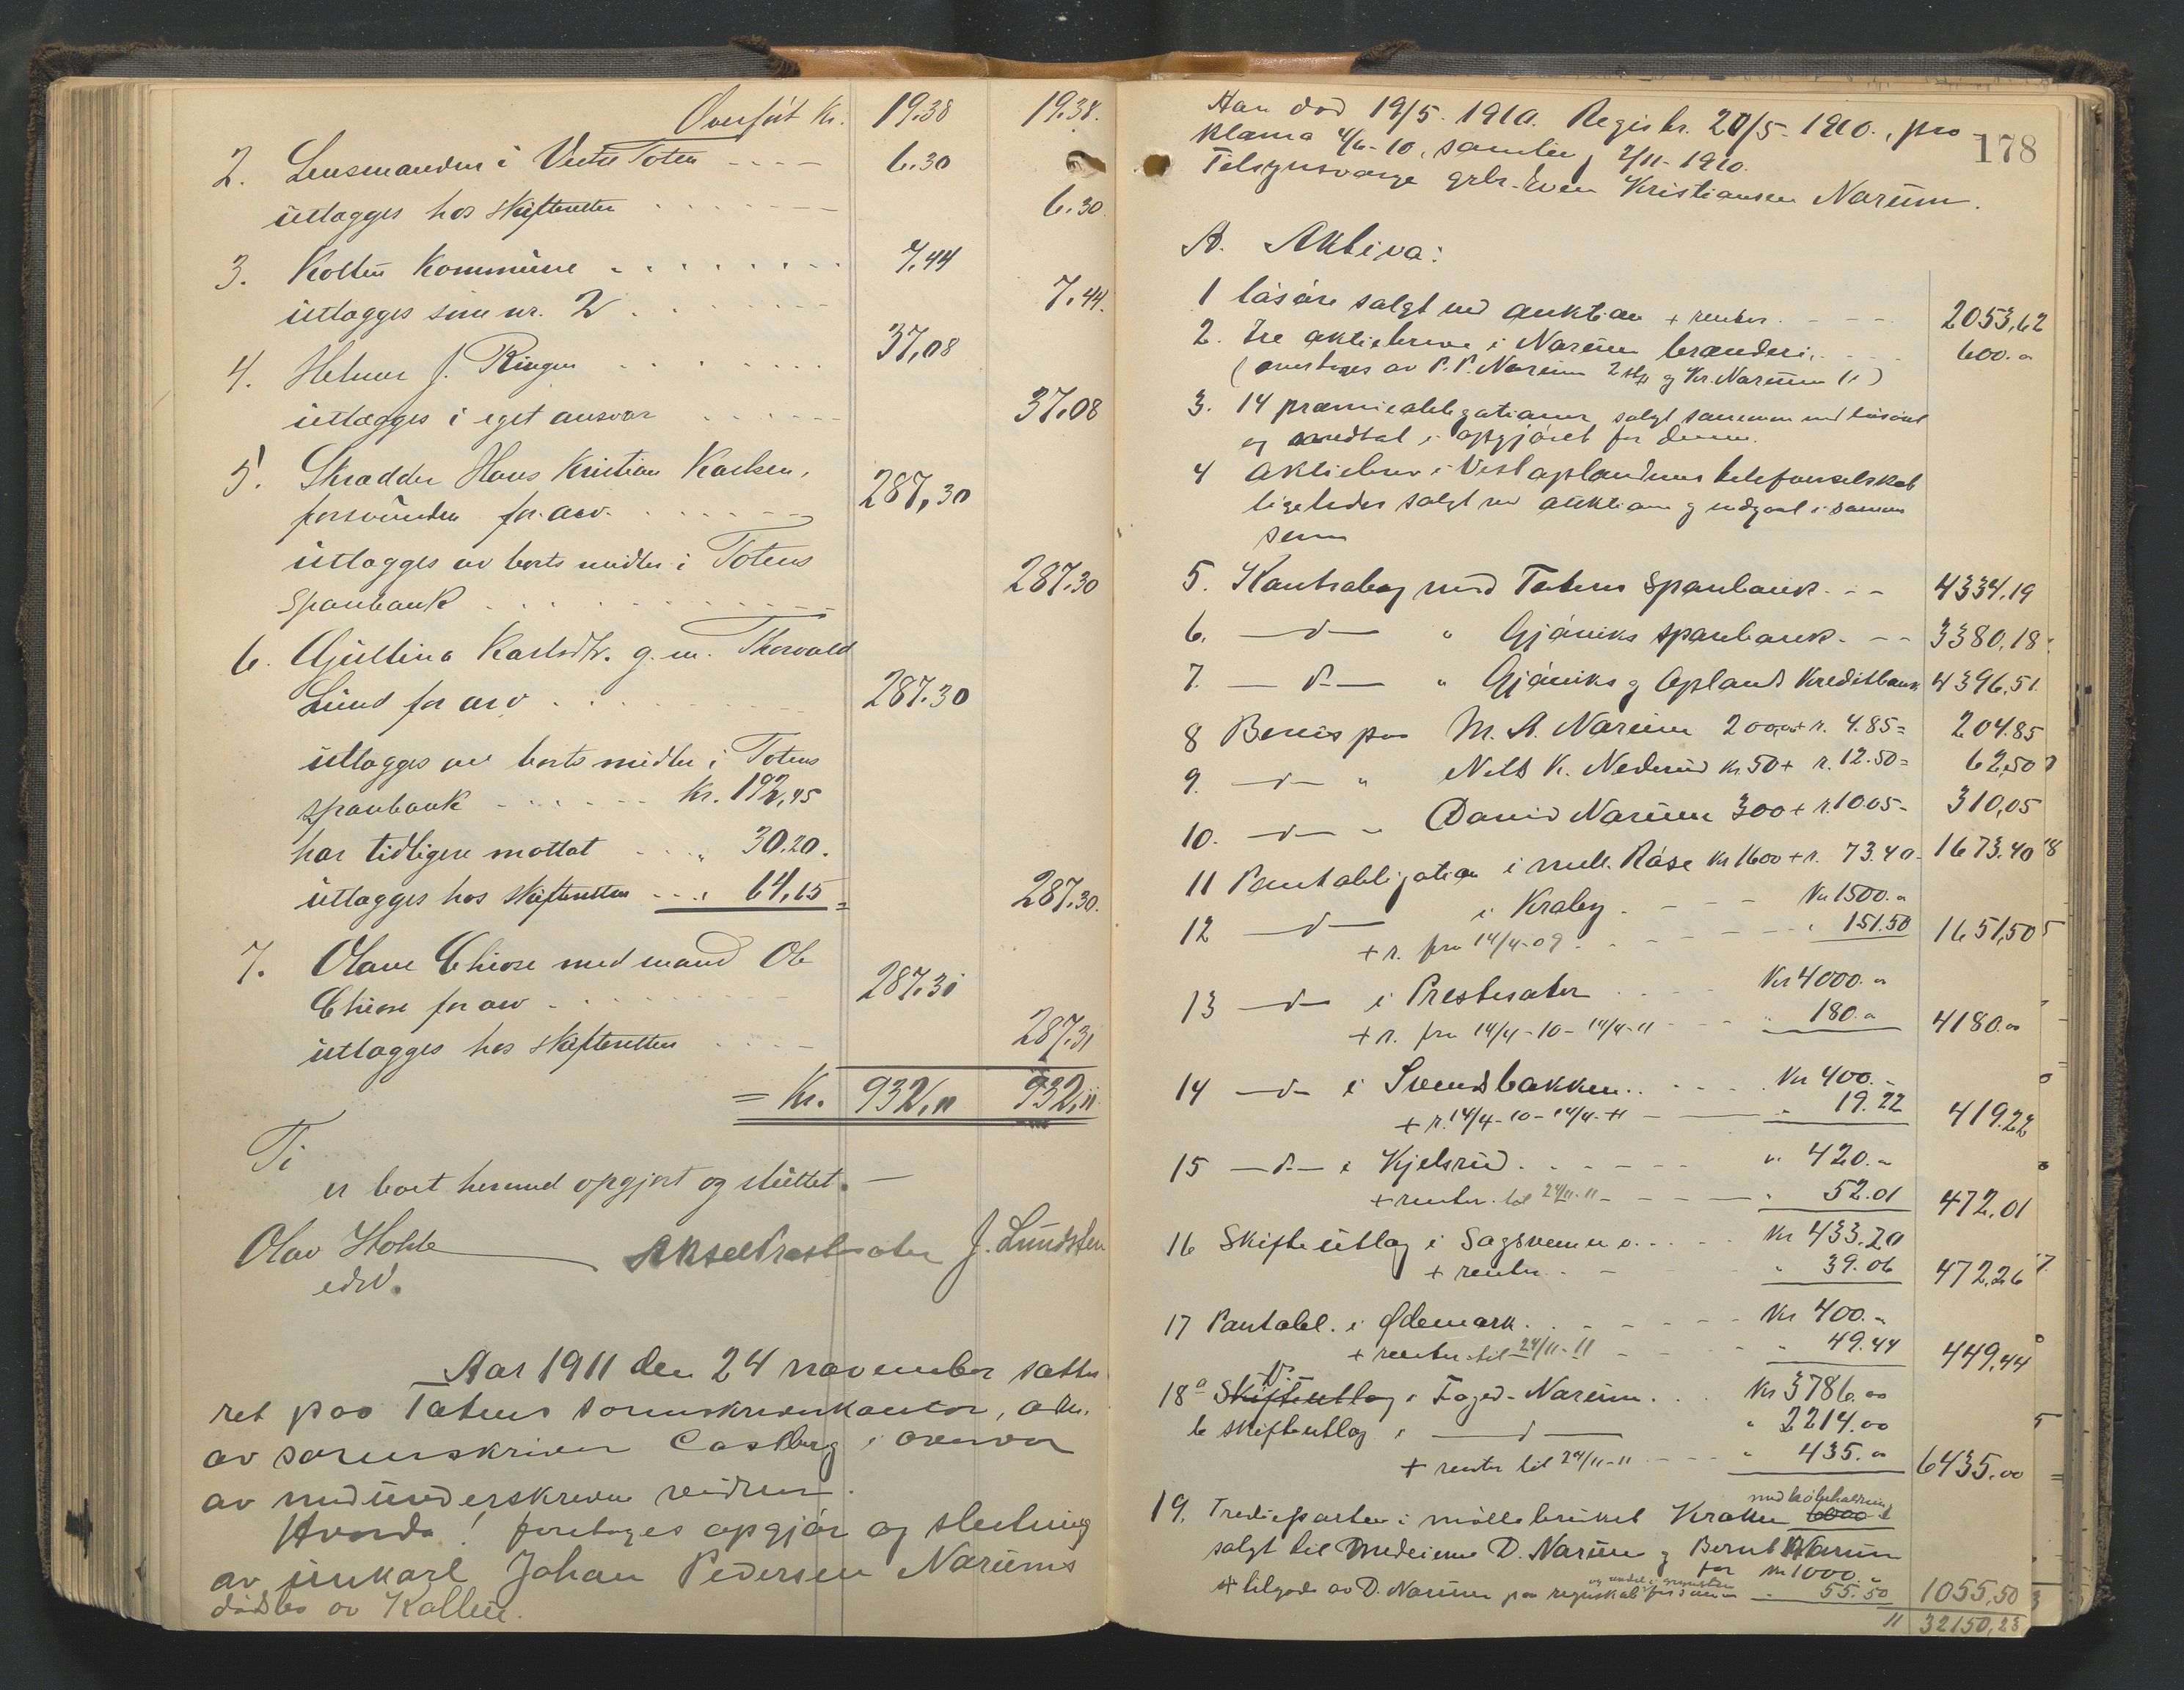 Overført Kr. 19.38 19.38.
2. Lensmanden i Vestre Toten 6.30
utlægges hos skifteretten 6.30.
3. Kolbu Kommune 7.44
utlægges som nr. 2 7.44.
4. Helmer J. Ringen 37,08
utlægges i eget ansvar 37.08
5. Skrædder Hans Kristian Karlsen,
forsvunden for arv. 287,30
utlægges av boets midler i Totens
Sparebank 287.30
6. Gjustina Karlsdtr. g.m. Thorvald
Lund for arv 287.30
utlægges av boets midler i Totens
sparebank kr. 192,95
har tidligere mottat " 30.20.
utlægges hos skifteretten " 64,15 = 287,30.
7. Olave med mand Ole
for arv 287.31
utlægges hos skifteretten 287,31
= Kr. 932,11 932,11
Ti
er boet hermed opgjort og sluttet.
Olav Holte Aksel Prestesæter J. Lundsten
edsv.
Aar 1911 den 24 november sattes
ret paa Totens sorenskriverkontor, adm.
av sorenskriver Castberg i overvær
av medunderskrevne vidner.
Hvorda! foretoges opgjør og slutning
av unkarl Johan Pedersen Narums
dødsbo av Kolbu.
178
Han død 19/5. 1910. Registr. 20/5-1910., pro-
klama 4/6-10, samling 2/11-1910.
Tilsynsværge grbr. Even Kristiansen Narum.
A. Aktiva:
1 løsøre salgt ved auktion + renter. 2053,62
2. tre aktiebreve i Narum brænderi. 600.00
(overtages av P.P. Narum 2 stk. og Kr. Narum 1)
3. 14 præmieobligationer salgt sammen med løsøret
og medtat i opgjøret for denne.
4 Aktiebrev i Vestoplandenes telefonselskab
ligeledes salgt ved auktion og indgaat i summen
5. Kontrabog med Totens Sparebank 4334,19
6. —d— " Gjøviks sparebank 3380,18
7. —d— " Gjøviks og Oplands Kreditbank 4396,51
8 Bevis paa M. A. Narum 200,00 + r. 4.85 = 204.85
9. —d— " Nils K. Nederud kr 50 + r. 12.50 = 62,50
10. —d— " David Narum 300 + r. 10.05 = 310,05
11 Pantobligation i Røse kr 1600 + r. 73.40 1673.40
12 —d— i Kraby kr 1500.00
+ r. fra 14/4-09 " 151.50 1651,50
13 —d— i Prestesæter kr 4000.00
+ r. fra 14/4-10 - 14/4-11 " 180.00 4180.00
14 —d— i Svendsbakken kr 400.-
+ r. 14/4-10 - 14/4-11 " 19.22 419.22
15 —d— i Kjelsrud " 420.-
+ renter til 24/11-11 " 52.01 472,01
16 Skifteutlæg i kr 433.20
+ renter " 39.06 472,26
17 Pantobl. i Ødemark kr 400.-
+ renter til 24/11-11 " 49.44 449,44
18 a Skifteutlæg i Narum kr 3786.00
b skifteutlæg i —d— " 2214.00
+ renter til 24/11-11 " 435.00 6435.00
19. Trediepartem i møllebruket Kroken
salgt til medeierne D. Narum og Bernt Narum
for kr 1000.-
+ tilgode av D. Narum paa regnskab " 55.50 1055,50
" 32150,23